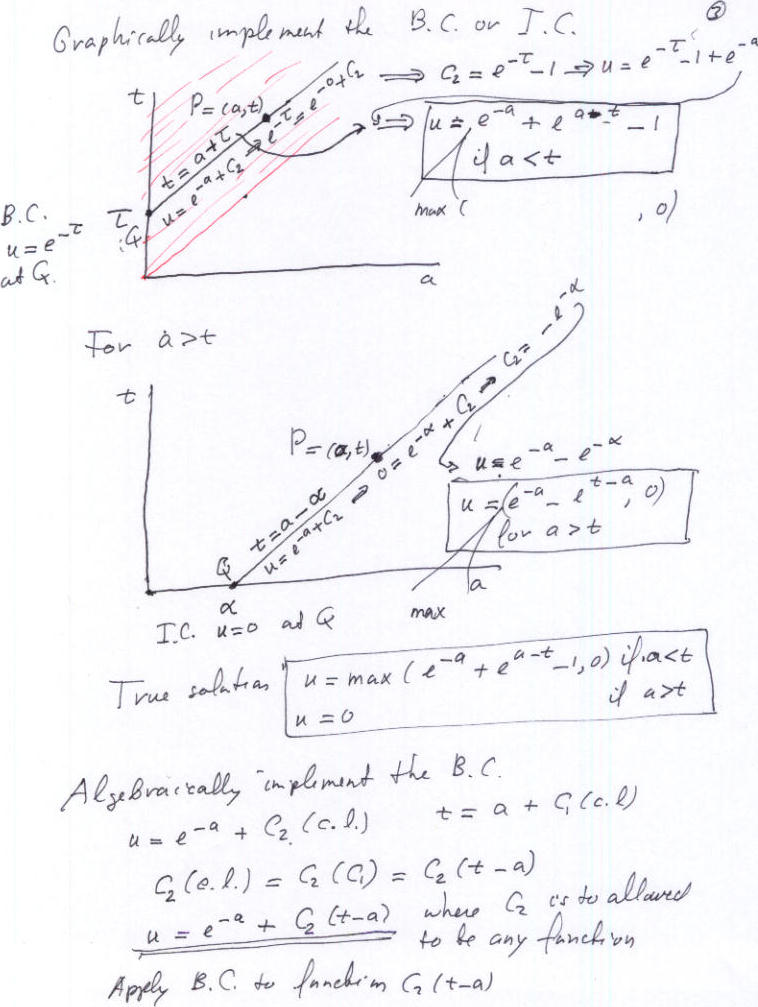 ③
Graphically implement the B.C. or I.C.
⟹ C₂ = e^{-τ} - 1 ⟹ u = e^{-τ} - 1 + e^{-a}
t
P = (a,t)
t = a + τ
u = e^{-a} + C₂ ⟹ e^{-τ} = e^{-0} + C₂
⟹ u = e^{-a} + e^{a-t} - 1
if a < t
max ( , 0)
B.C.
u = e^{-τ}
at Q.
τ
Q
a
For a > t
t
P = (a,t)
t = a - α
u = e^{-a} + C₂ ⟹ 0 = e^{-α} + C₂ ⟹ C₂ = -e^{-α}
u = e^{-a} - e^{-α}
u = (e^{-a} - e^{t-a}, 0)
for a > t
max
Q
α
a
I.C. u = 0 at Q
True solution
u = max (e^{-a} + e^{a-t} - 1, 0) if a < t
u = 0 if a > t
Algebraically implement the B.C.
u = e^{-a} + C₂ (c.l.) t = a + C₁ (c.l)
C₂ (c.l.) = C₂ (C₁) = C₂ (t - a)
u = e^{-a} + C₂ (t-a) where C₂ is to allowed
to be any function
Apply B.C. to function C₂ (t-a)